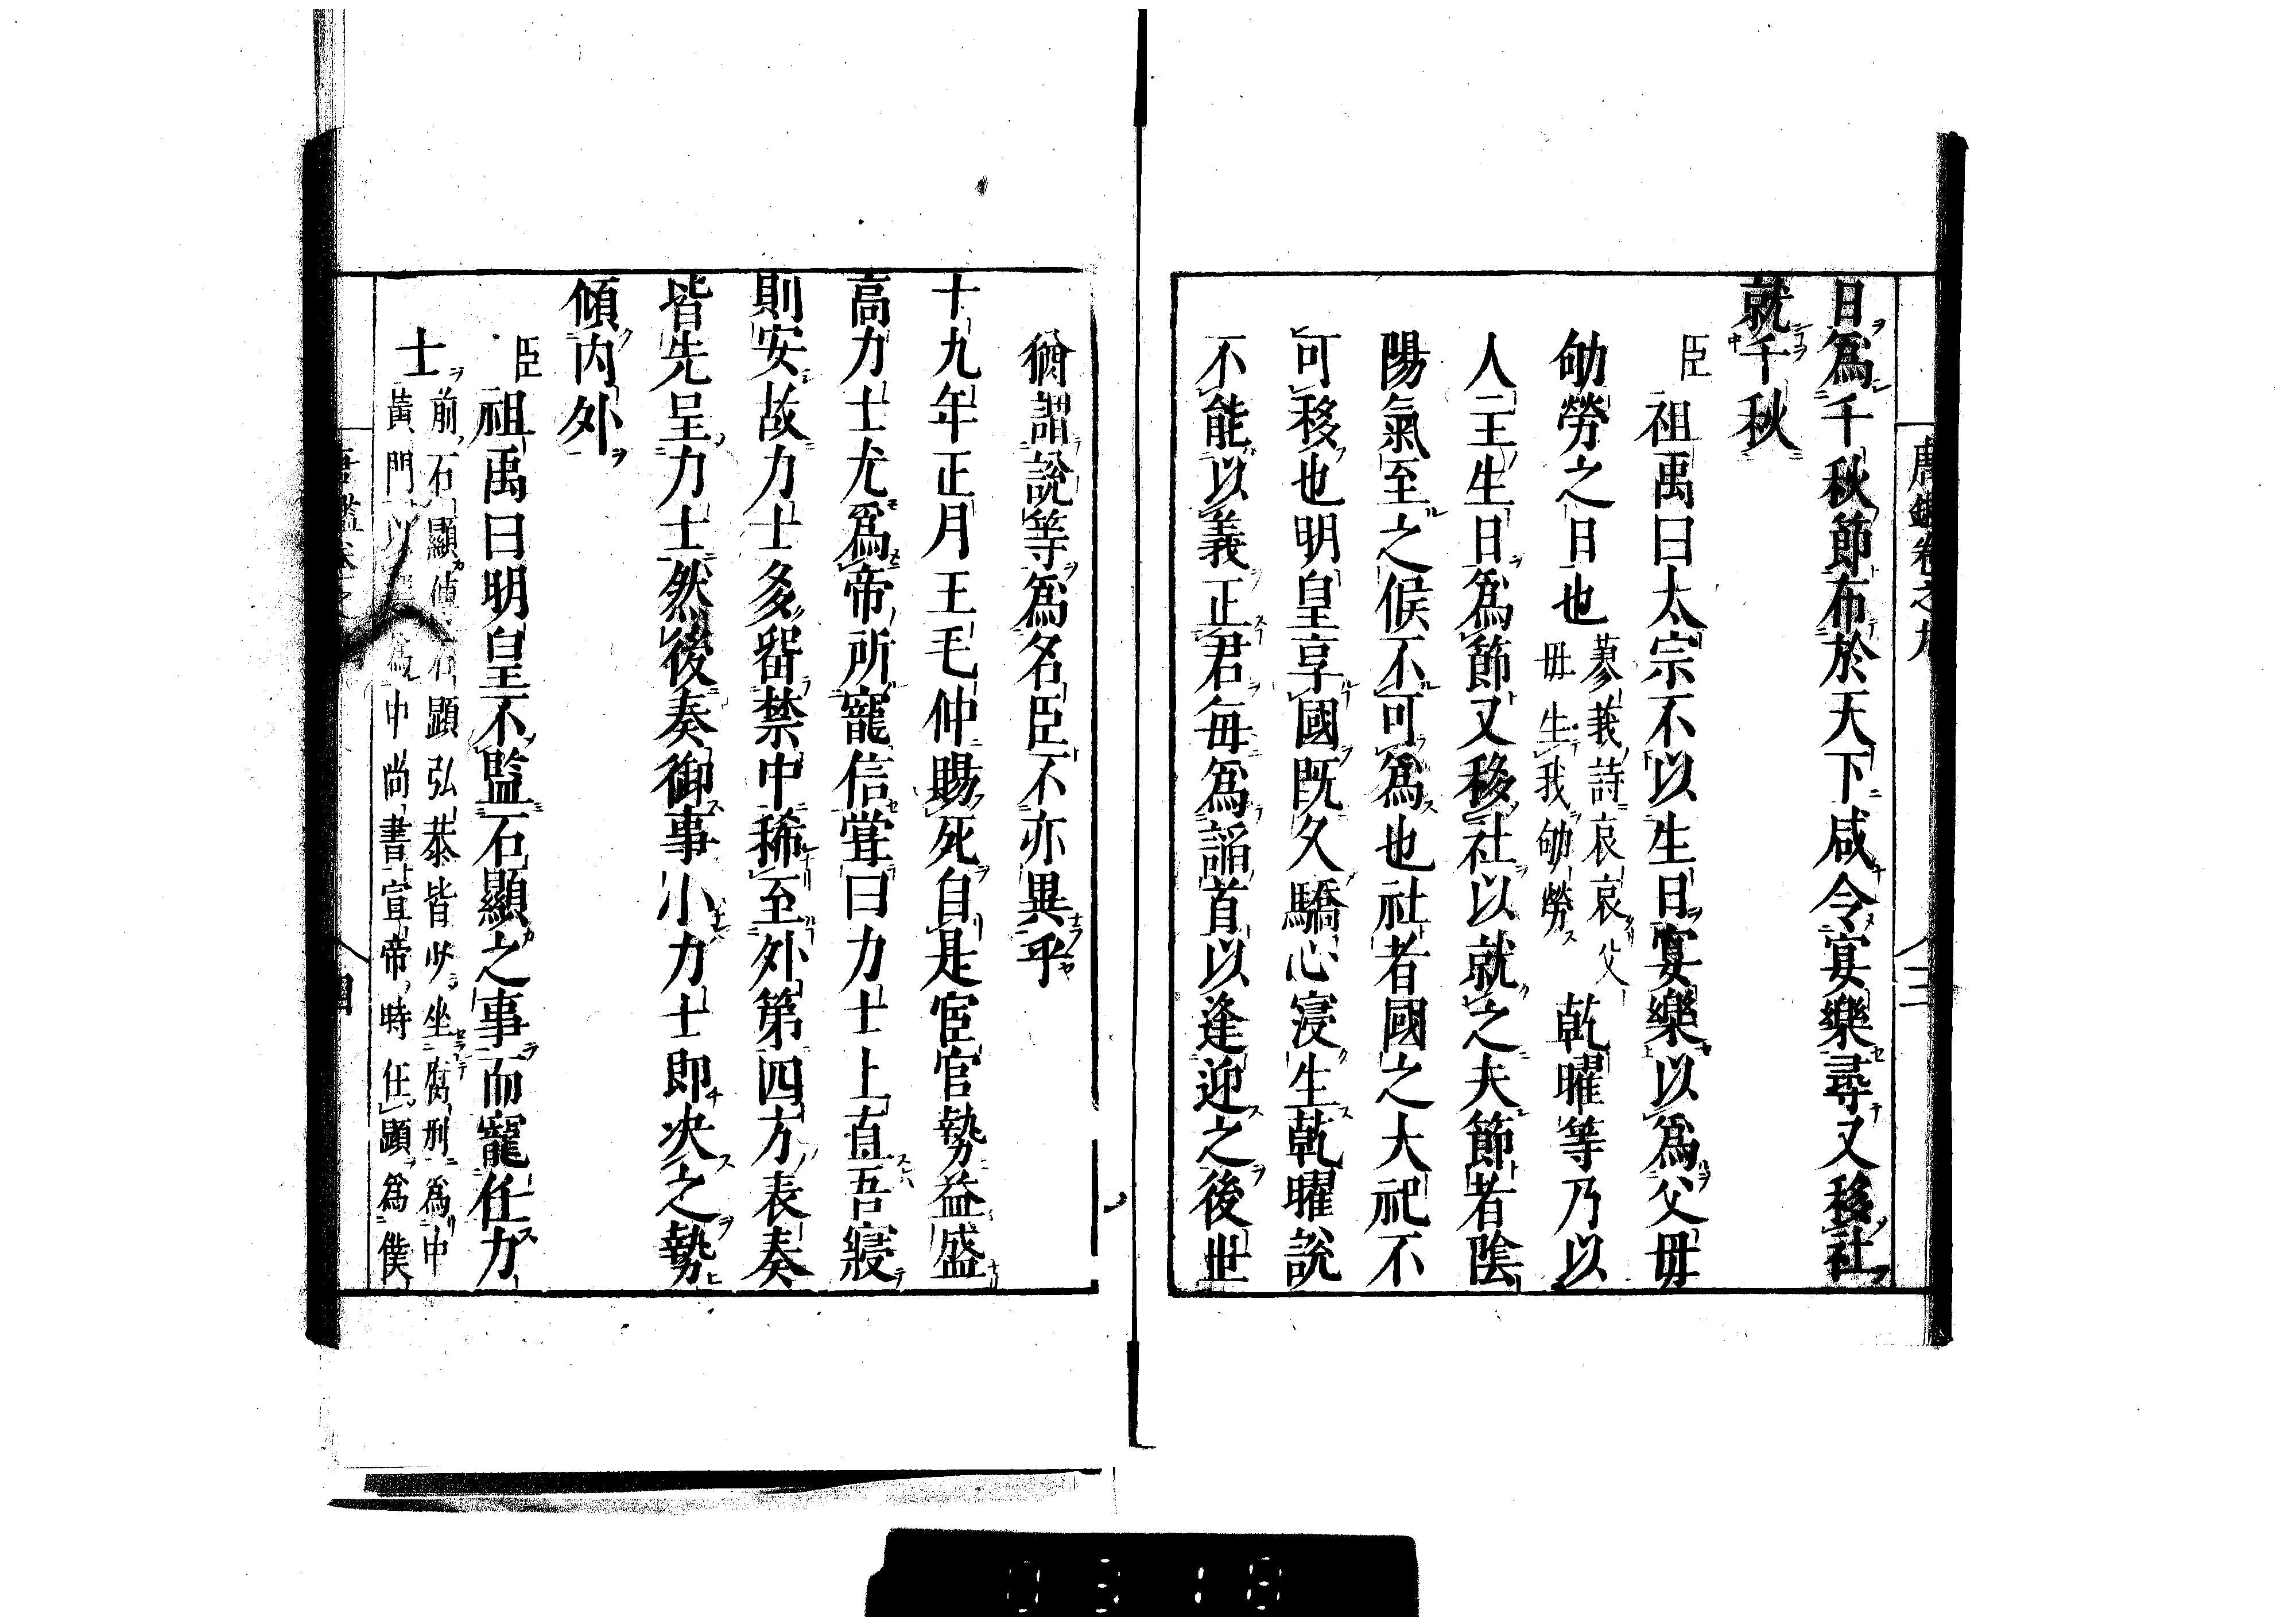 唐鑑卷之九
三
日爲千秋節布於天下咸令宴樂尋又移社
就千秋
臣祖禹曰太宗不以生日宴樂以爲父毋
劬勞之日也
蓼莪詩哀哀父
毋生我劬勞
乾曜等乃以
人主生日爲節又移社以就之夫節者陰
陽氣至之候不可爲也社者國之大祀不
可移也明皇享國既久驕心寖生乾曜說
不能以義正君每爲謟首以逢迎之後世
猶謂說等爲名臣不亦異乎
十九年正月王毛仲賜死自是宦官勢益盛
高力士尤爲帝所寵信甞曰力士上直吾寢
則安故力士多留禁中稀至外第四方表奏
皆先呈力士然後奏御事小力士即决之勢
傾內外
臣祖禹曰明皇不監石顯之事而寵任力
士
前石顯傳石顯弘恭皆少坐腐刑爲中
黃門以爲中尚書宣帝時任顯爲僕
四
0318